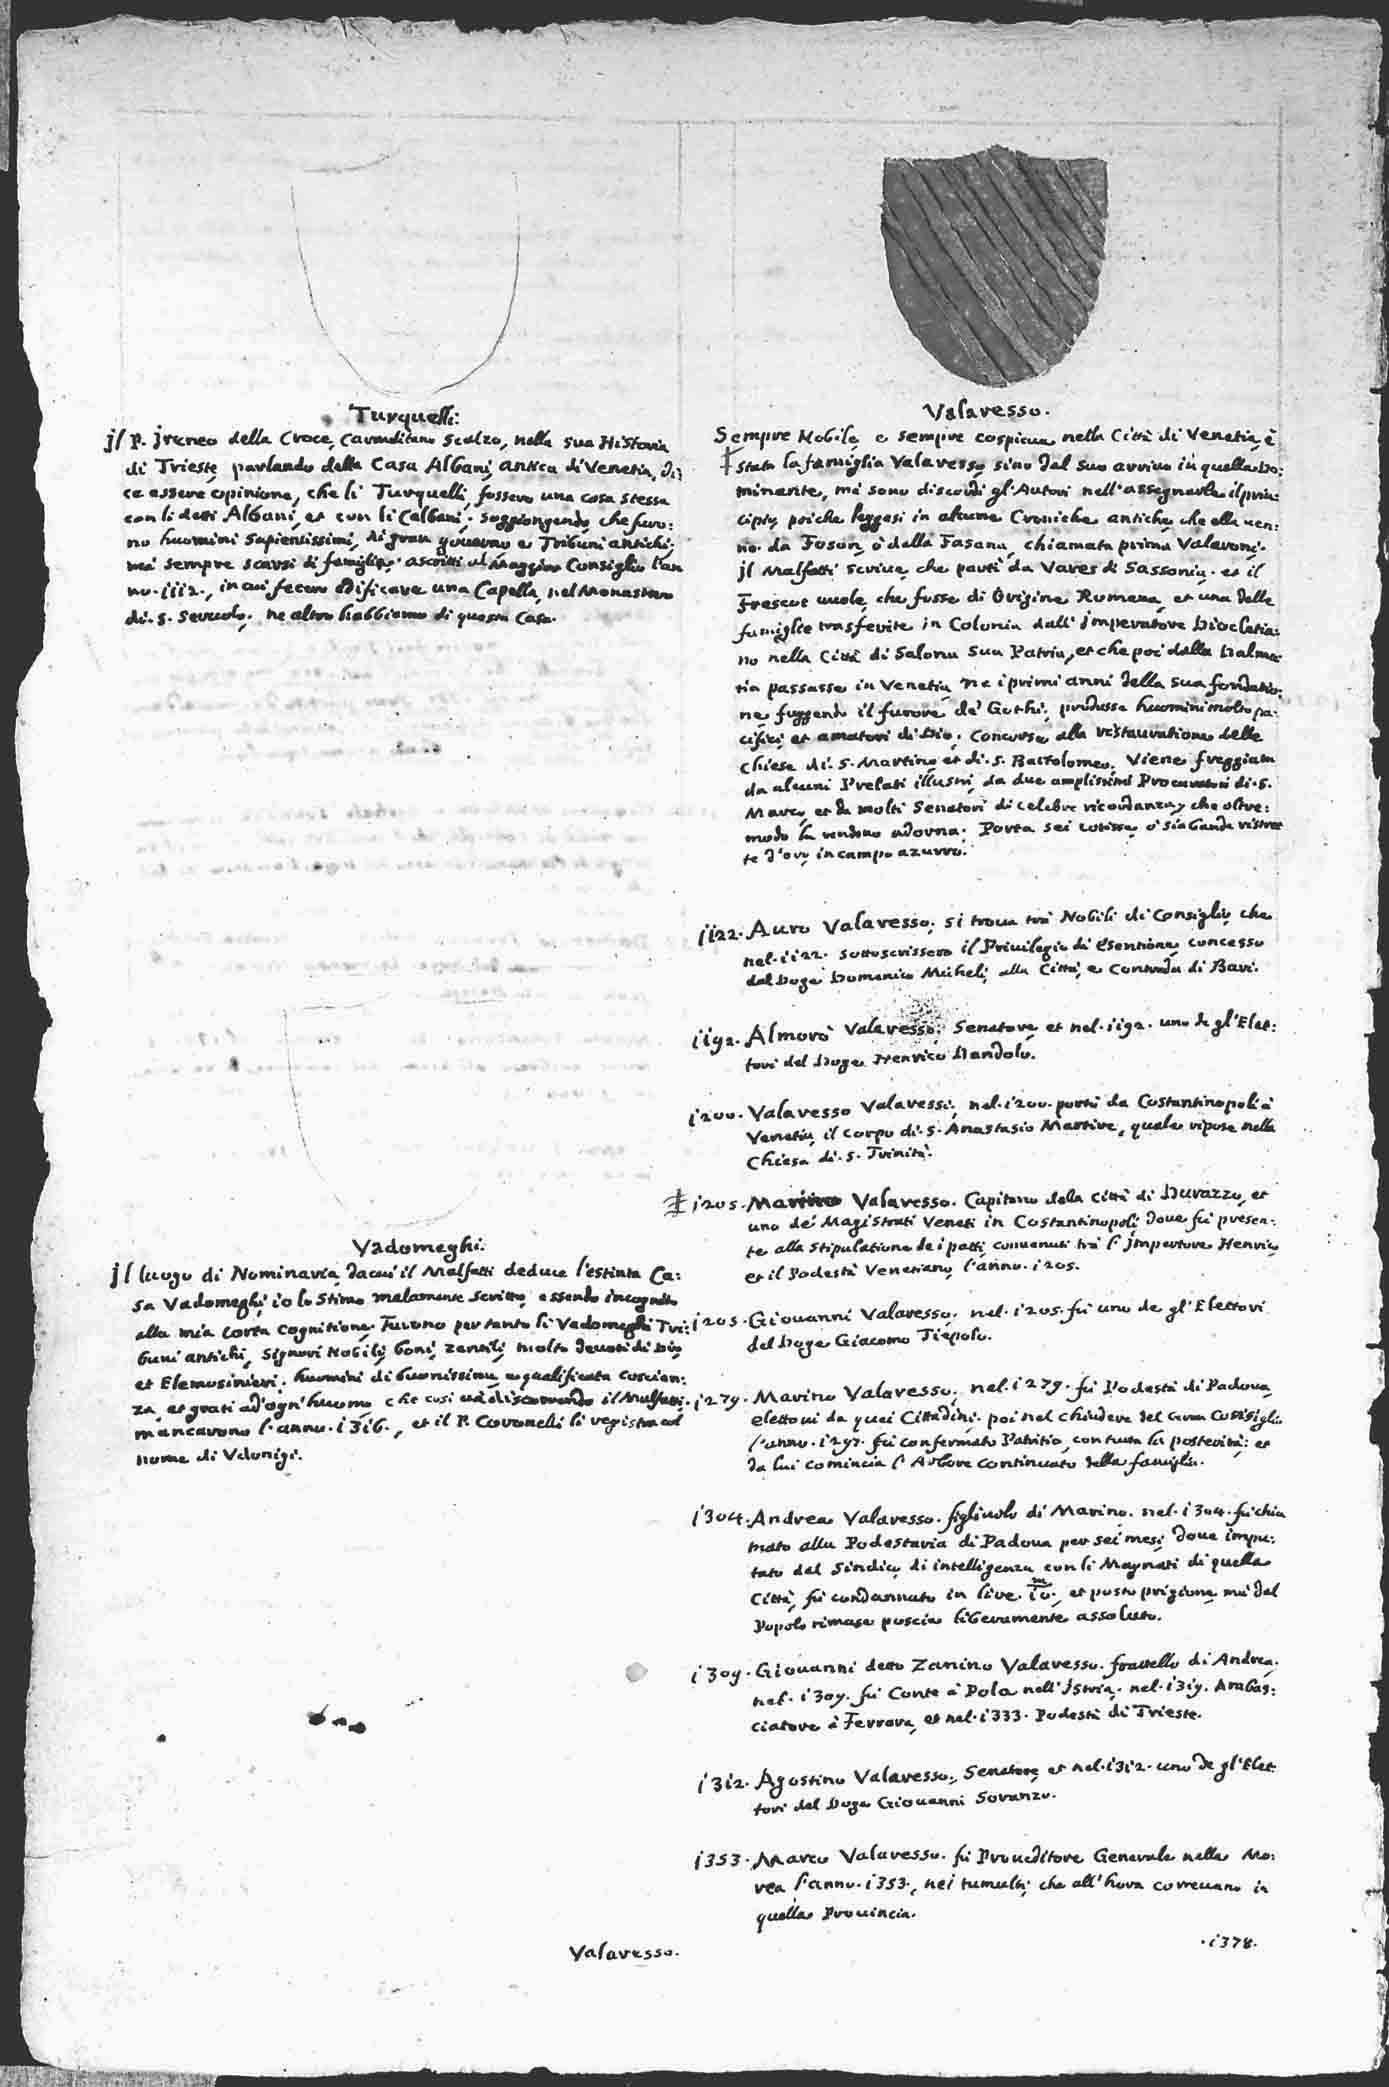 Turquelli.
jl P. jreneo della Croce, Carmelitano Scalzo, nella sua Historia
di Trieste, parlando della Casa Albani, antica di Venetia, di:
ce essere opinione, che li Turquelli, fossero una cosa stessa
con li detti Albani, et con li Celbani. soggiongendo, che furo:
no huomini sapientissimi, di gran governo e Tribuni antichi;
mà sempre scarsi di famiglia, ascritti al Maggior Consiglio l'an
no. iii2., in cui fecero edificare una Capella, nel Monastero
di. S. Servolo. ne altro habbiamo di questa Casa.
Vadomeghi.
jl luogo di Nominaria, da cui il Malfatti deduce l'estinta Ca:
sa Vadomeghi, io lo stimo malamente scritto, essendo incognito
alla mia corta cognitione. Furono per tanto li Vadomeghi Tri:
buni antichi, Signori Nobili, boni, zentili, molto devoti di Dio,
et Elemosinieri. huomini di buonissima, e qualificata coscien:
za, et grati ad'ogn'huomo, che così và discorrendo il Malfatti.
mancarono l'anno. i3i6., et il P. Coronelli li registra col
nome di Vdonigi.
Valaresso.
Sempre Nobile, e sempre cospicua nella Città di Venetia, è
stata la famiglia Valaresso, sino dal suo arrivo in quella Do:
minante, mà sono discordi gl'Autori nell'assegnarle il prin:
cipio, poiche leggesi in alcune Croniche antiche, che ella ven:
ne da Foson, ò dalla Fasana, chiamata prima Valaroni.
jl Malfatti scrive, che partì da Vares di Sassonia. et il
Frescot vuole, che fosse di Origine Romana, et una delle
famiglie trasferite in Colonia dall'jmperatore Diocletia:
no nella Città di Salona sua Patria, et che poi dalla Dalma:
tia passasse in Venetia, ne i primi anni della sua fondatio:
ne, fuggendo il furore de' Gothi, produsse huomini molto pa:
cifici, et amatori di Dio. Concorse alla restauratione delle
Chiese di. S. Martino, et di. S. Bartolomeo. Viene freggiata
da alcuni Prelati illustri, da due amplissimi Procuratori di. S.
Marco, et da molti Senatori di celebre ricordanza, che oltre:
modo la rendono adorna. Porta sei cotisse, ò sia bande ristret
te d'oro, in campo azurro.
ii22. Auro Valaresso, si trova trà Nobili di Consiglio, che
nel. ii22. sottoscrissero il Privilegio di Esentione, concesso
dal Doge Domenico Micheli, alla Città, e Contrada di Bari.
ii92. Almorò Valaresso, Senatore, et nel. ii92. uno de gl'Elet:
tori del Doge Henrico Dandolo.
i200. Valaresso Valaressi, nel. i200. portò da Costantinopoli à
Venetia, il corpo di. S. Anastasio Martire, quale ripose nella
Chiesa di. S. Trinità.
i205. Marino Valaresso. Capitano della Città di Durazzo, et
uno de' Magistrati Veneti in Costantinopoli, dove fù presen:
te alla stipulatione de i patti, convenuti trà l'jmperatore Henrico,
et il Podestà Venetiano, l'anno. i205.
i205. Giovanni Valaresso, nel. i205. fù uno de gl'Elettori
del Doge Giacomo Tiepolo.
i279. Marino Valaresso, nel. i279. fù Podestà di Padova,
eletto vi da quei Cittadini. poi nel chiudere del Gran Consiglio
l'anno. i297. fù confermato Patritio, con tutta la posterità; et
da lui comincia l'Arbore continuato della famiglia.
i304. Andrea Valaresso. figliuolo di Marino. nel. i304. fù chia
mato alla Podestaria di Padova per sei mesi, dove impu:
tato dal Sindico, di intelligenza con li Magnati di quella
Città, fù condannato in lire. m/io., et posto prigione, mà dal
Popolo rimase poscia liberamente assoluto.
i309. Giovanni detto Zanino Valaresso. fratello di Andrea,
nel. i309. fù Conte à Pola nell'jstria, nel. i3i9. Ambas:
ciatore à Ferrara, et nel. i333. Podestà di Trieste.
i3i2. Agostino Valaresso, Senatore, et nel. i3i2. uno de gl'Elet
tori del Doge Giovanni Soranzo.
i353. Marco Valaresso. fù Proveditore Generale nella Mo:
rea l'anno. i353., nei tumulti, che all'hora correvano in
quella Provincia.
.i378.
Valaresso.